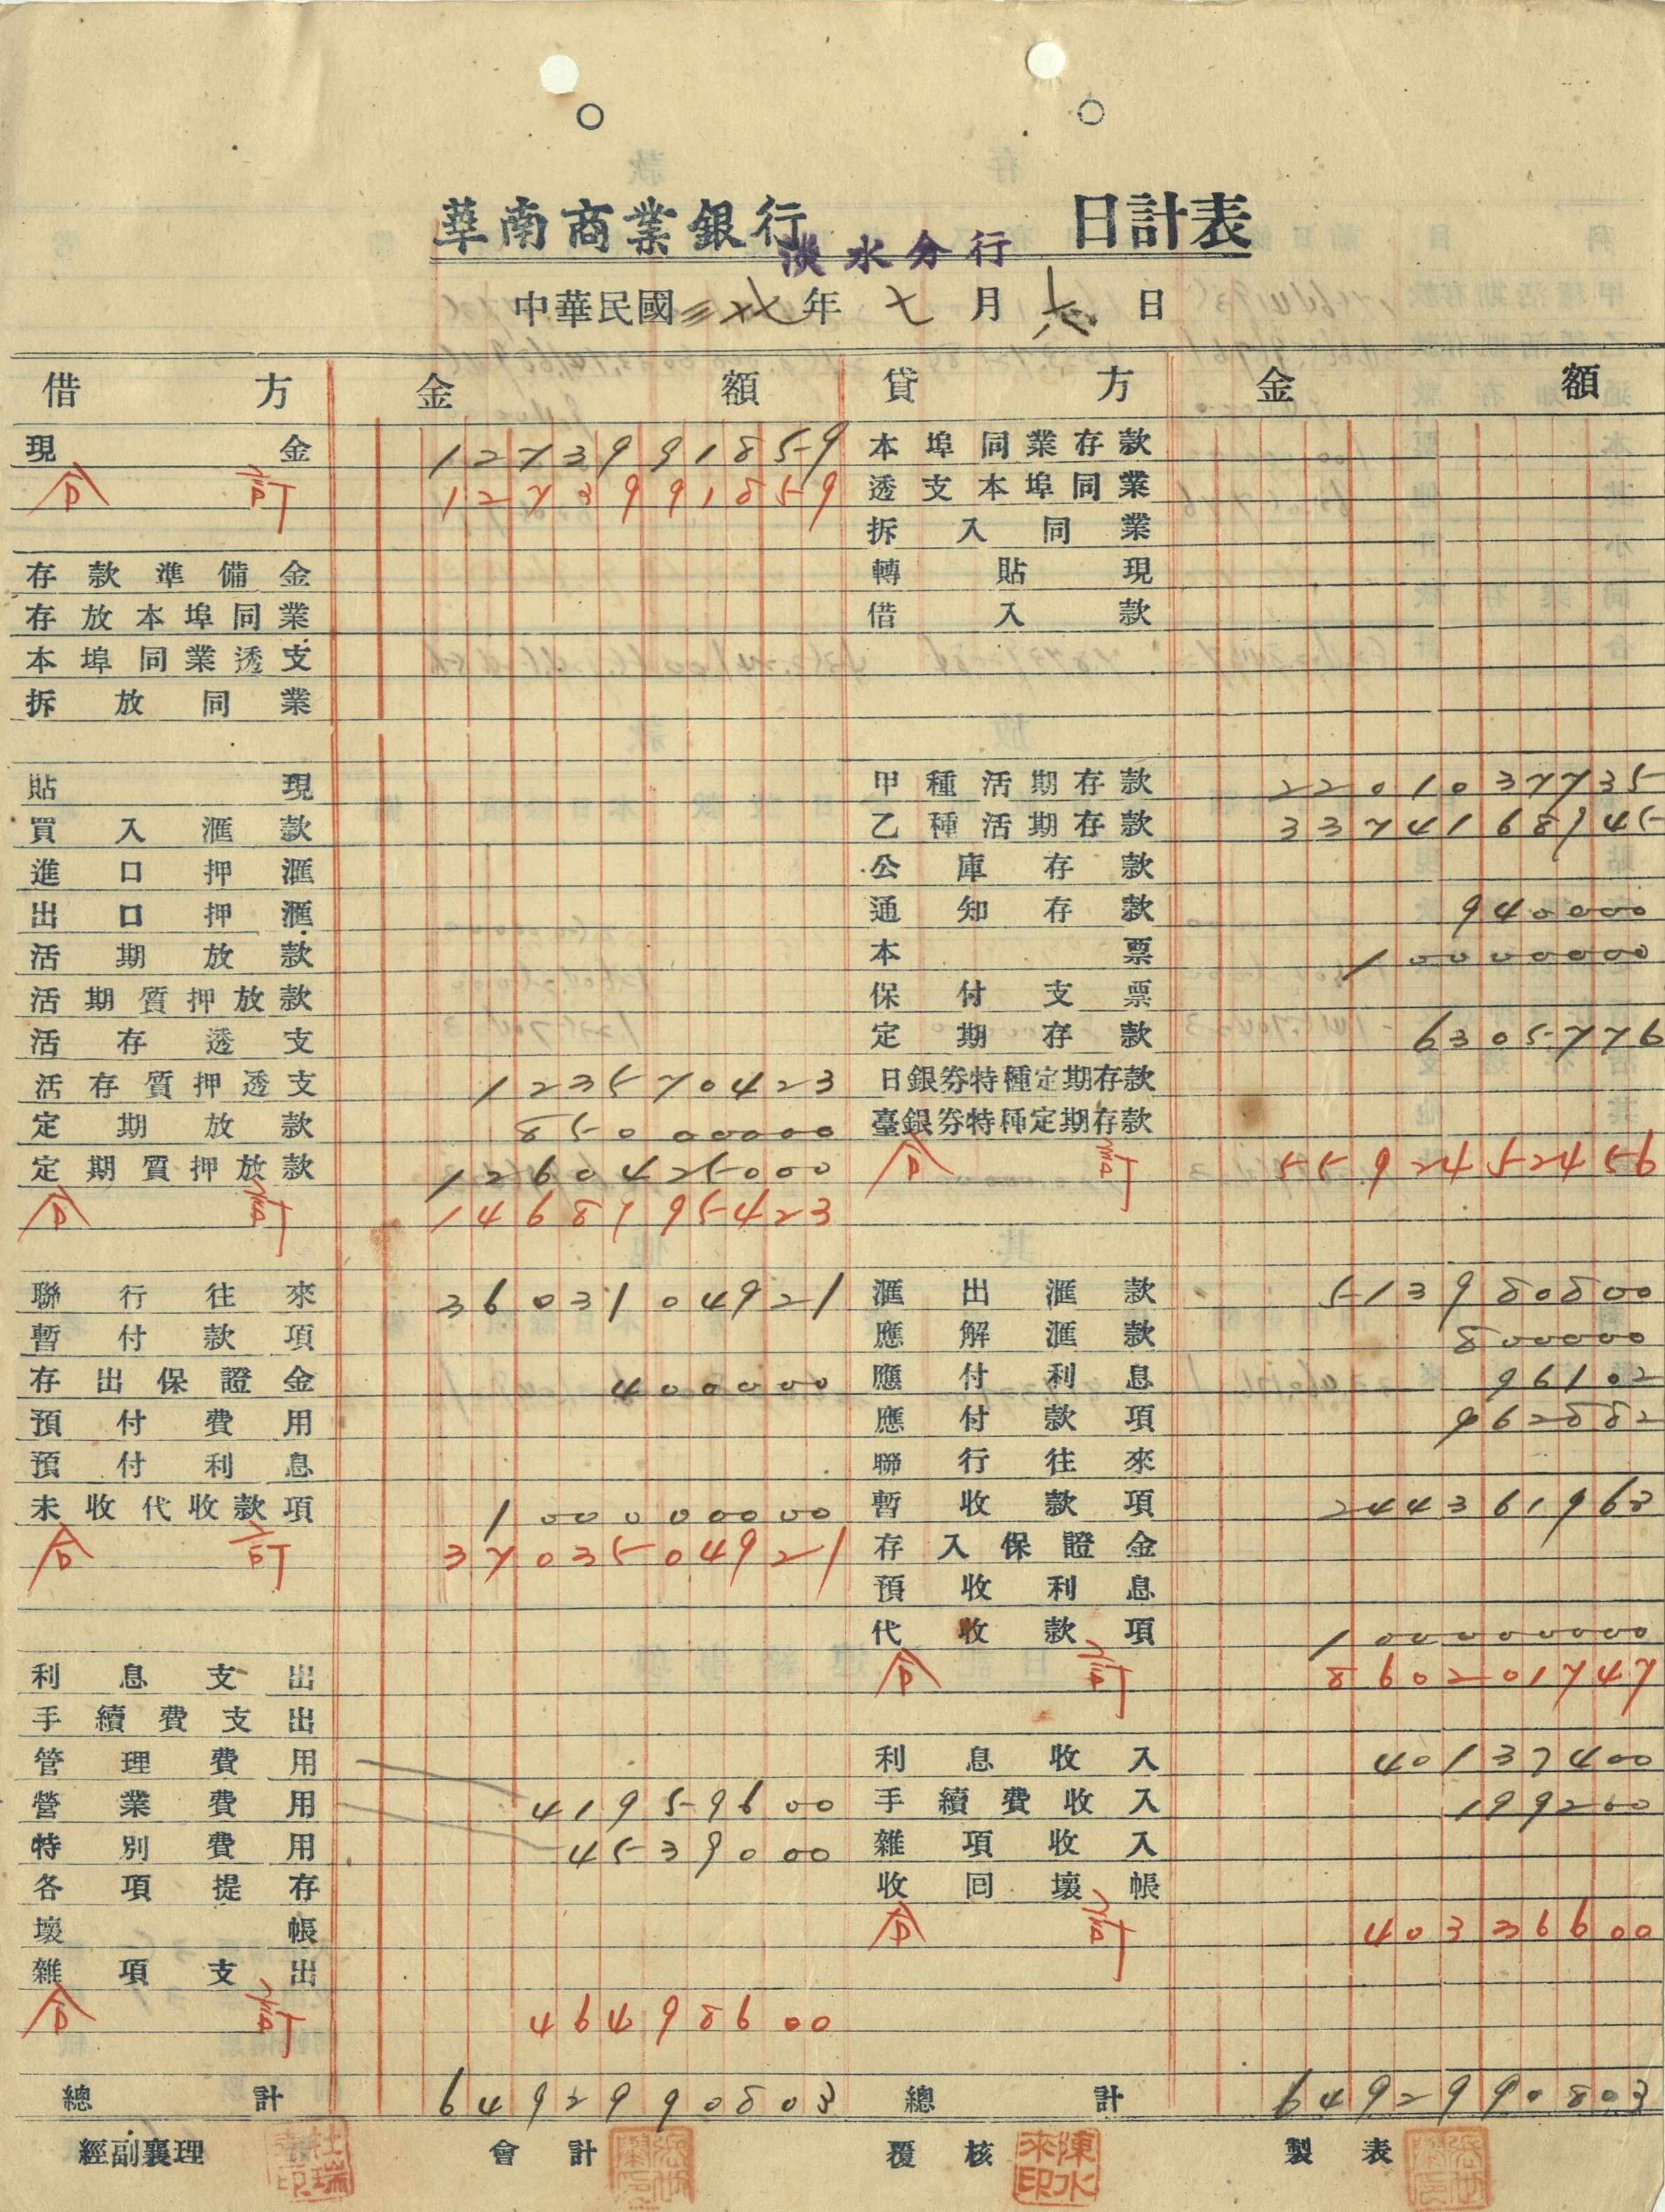 華南商業銀行 淡水分行 日計表
中華民國三十七年 七月 日
借方 金額 貸方 金額
現金 1273991859 本埠同業存款
合計 1273991859 透支本埠同業
拆入同業
存款準備金 轉貼現
存放本埠同業 借入款
本埠同業透支
拆放同業
貼現 甲種活期存款 2201037735
買入滙款 乙種活期存款 3374168945
進口押滙 公庫存款
出口押滙 通知存款 940000
活期放款 本票 10000000
活期質押放款 保付支票
活存透支 定期存款 6305776
活存質押透支 123570423 日銀券特種定期存款
定期放款 85000000 臺銀券特種定期存款
定期質押放款 1260425000 合計 5592452456
合計 1468995423
聯行往來 3603104921 滙出滙款 513980800
暫付款項 應解滙款 800000
存出保證金 400000 應付利息 96102
預付費用 應付款項 962882
預付利息 聯行往來
未收代收款項 100000000 暫收款項 244361963
合計 3703504921 存入保證金
預收利息
代收款項 100000000
利息支出 合計 860201747
手續費支出
管理費用 利息收入 40137400
營業費用 41959600 手續費收入 199200
特別費用 4539000 雜項收入
各項提存 收回壞帳
壞帳 合計 40336600
雜項支出
合計 46498600
總計 6492990803 總計 6492990803
經副襄理 會計 覆核 陳水來印 製表